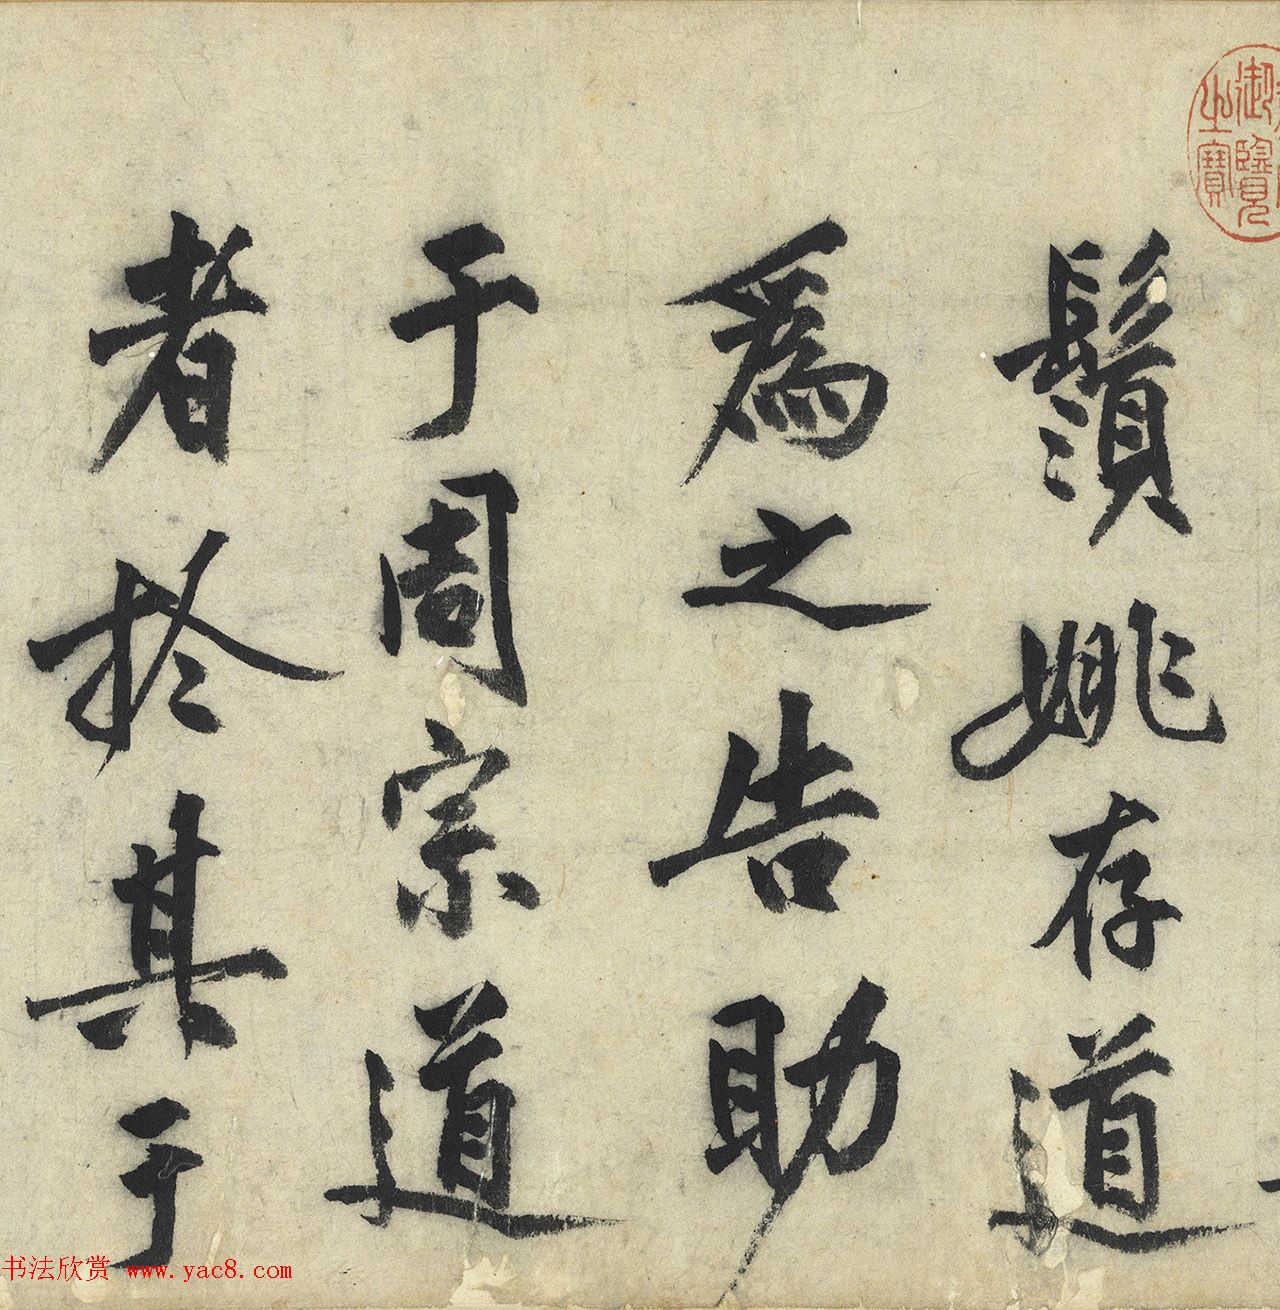 御覽
之寶
鬚姚存道
為之告助
于周宗道
者於其于
书法欣赏 www.yac8.com